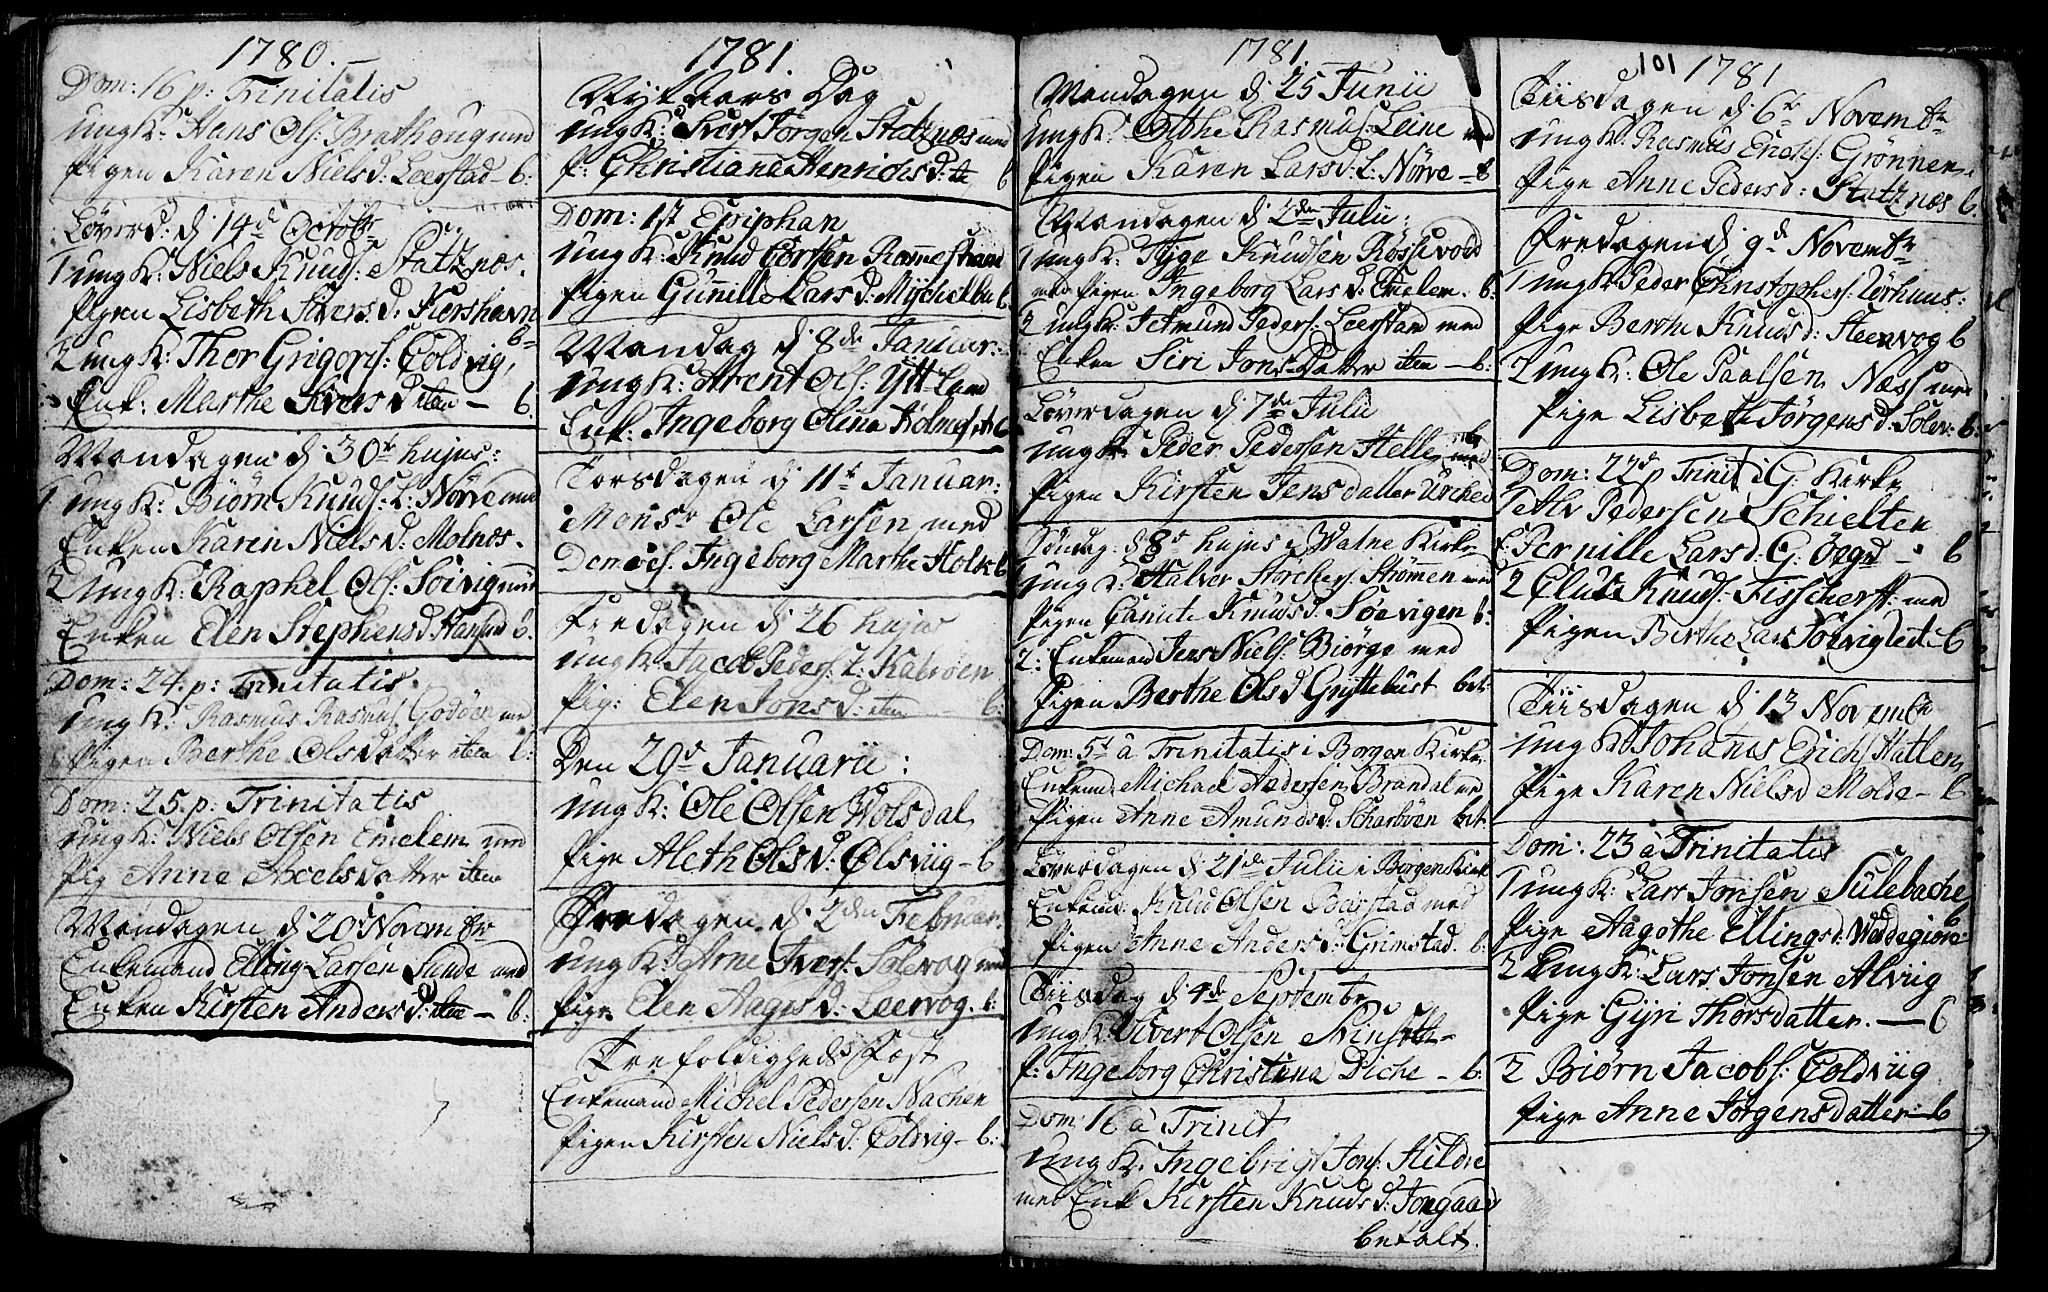 1780.
Dom: 16 p: Trinitatis
ungK: Hans Ols: Brathoug med
Pigen Karen Nielsd: Leerstad - b:
Löverd: d: 14d Octobr
1 ungK: Niels Knuds: Statznæs.
Pigen Lisbeth Sivers d: Kershavn
b
2 ungK: Thor Grigors: Coldvig,
Enk: Marthe Ivers D iten - b.
Mandagen d: 30te hujus:
1 ungK: Biörn Knuds: L: Nörve med
Enken Karen Niels d: Molnæs.
2 ungK: Raphel Ols: Soivig med
Enken Elen Stephensd b.
Dom: 24. p: Trinitatis
ungK: Rasmus Rasmus: Godöen med
Pigen Berthe Olsdatter iten b:
Dom: 25. p: Trinitatis
ungK: Niels Olsen Emelem med
Pig Anne Axelsdatter iten
Mandagen d: 20 Novembr
Enkemand Elling Larsen Sunde med
Enken Kirsten Anders d: iten - b:
1781.
Nytaars Dag
ungK: Sivert Jörgen Statznæs med
P: Christiana Henrichs d: b
Dom: 1st Epiphan
ungK: Knud Corsen Ramestrand
Pigen Gunille Lars d: b.
Mandag d: 8de Januar:
ungK: Arent Ols: Ytterland
Enk: Ingeborg Olina b
Torsdagen d: 11te Januar:
Monsr Ole Larsen med
Ingeborg Marthe Holk b
Fredagen d: 26 hujus
ungK: Jacob Peders: L: Kalvöen
Pig: Elen Jons d: iten b:
Den 29d Januarii:
ungK: Ole Olsen Wolsdal
Pige Aleth Ols d: Olsviig - b
Fredagen d: 2den Februar:
ungK: Arne Ivers: Solevog med
Pige Elen Aages d: Leervog. b:
Trefoldigheds Fæst
Enkemand Michel Pedersen Nachen
Pigen Kirsten Niels d: Coldvig - b:
1781.
Mandagen d: 25 Junii
ungK: Otthe Rasmus: Leine med
Pigen Karen Lars d: L: Nörve - b
Mandagen d: 2den Julii:
1 ungK: Tyge Knudsen Rössevold
med Pigen Ingeborg Lars d: Emelem. b:
2 ungK: Jetmund Peders: Leerstad med
Enken Siri Jons Datter iten - b:
Löverdagen d: 7de Julii
b
ungK: Peder Pedersen Helle med
Pigen Kirsten Jensdatter
Söndag: d: 8d hujus i Watne Kirke
1 ungK: Halver Störchers: Strömen med
Pigen Canute Knuds d. Soevigen b:
2: Enkemand Jens Niels: Biörge med
Pigen Berthe Ols d Gryttelust bet:
Dom: 5t à Trinitatis i Borgen Kirke
Enkemd. Michael Andersen Brandal med
Pigen Anne Amunds d: Scharböen bet:
Löverdagen d: 21de Julii i Borgen Kirk
Enkemd: Knud Olsen Barstad med
Pigen Anne Anders d: Grimstad. b:
Tiisdag d: 4de Septembr
ungK: Sivert Olsen
P: Ingeborg Christina Diche - b:
Dom: 16 à Trinit
ungK: Ingebrigt Jons: Hildre
med Enk Kirsten Knuds d: Jongaard
betalt.
101
1781
Tiisdagen d: 6te Novembr
ungK: Rasmus Erichs: Grönnen:
Pige Anne Peders d: Statznæs b.
Fredagen d: 9d Novembr
1 ungK: Peder Christophers: Rörhuus:
Pige Berthe Knuds d: Steenvog b
2 ungK: Ole Paalsen Næss med
Pige Lisbeth Jörgens d: Solev: b:
Dom: 22d p Trinit i G. Kirke
Tetlv Pedersen Schielten
P: Pernille Lars d: G: - b
2 Clus Knuds: med
Pigen Berthe Lars - b
Tiisdagen d: 13 Novembr
ungK: Johanes Erichs Hatlem
Pige Karen Niels d Molde - b
Dom: 23 à Trinitatis
1 ungK: Lars Jonsen Sulebache
b
Pige Aagothe Ellings d: Waddegiöre
2 ungK: Lars Jonsen Alviig
Pige Gyri Thorsdatter. - b
2 Biörn Jacobs: Coldviig
Pige Anne Jörgensdatter - b